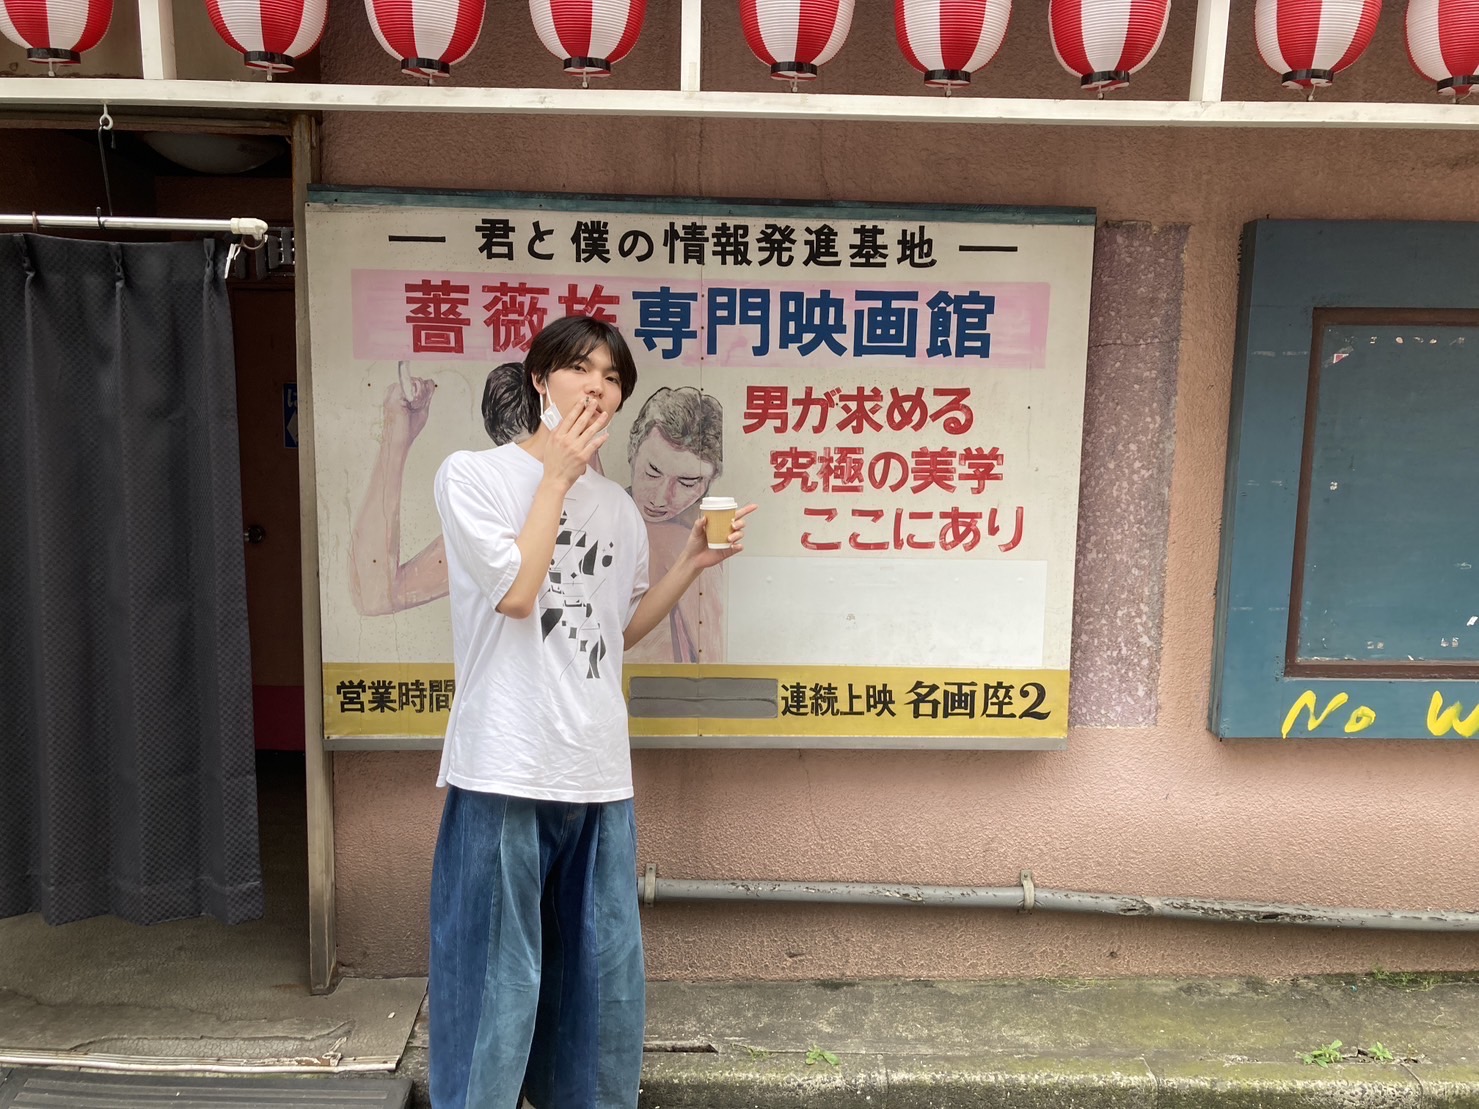 ― 君と僕の情報発進基地 ―
薔薇族専門映画館
男が求める
究極の美学
ここにあり
営業時間
連続上映 名画座2
No W